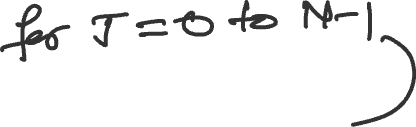 for J = 0 to N-1